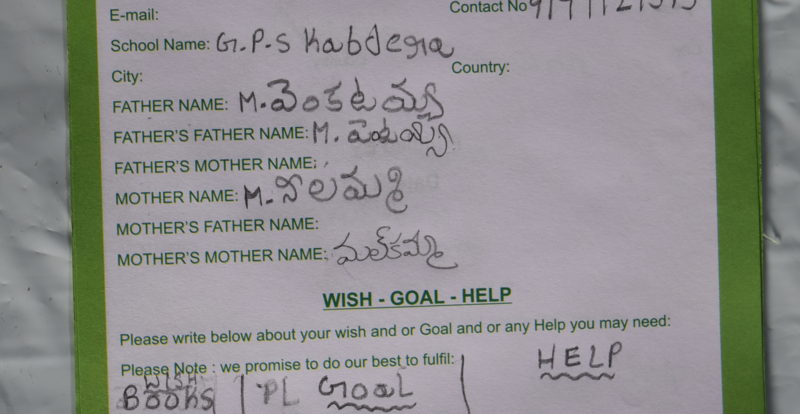 E-mail: Contact No
School Name: G.P.S Kabdegra
City: Country:
FATHER NAME: M. వెంకటయ్య
FATHER'S FATHER NAME: M. పెంటయ్య
FATHER'S MOTHER NAME:
MOTHER NAME: M.
MOTHER'S FATHER NAME:
MOTHER'S MOTHER NAME: మల్కమ్మ
WISH - GOAL - HELP
Please write below about your wish and or Goal and or any Help you may need:
Please Note : we promise to do our best to fulfil:
WISH HELP
BOOKS PL GOAL